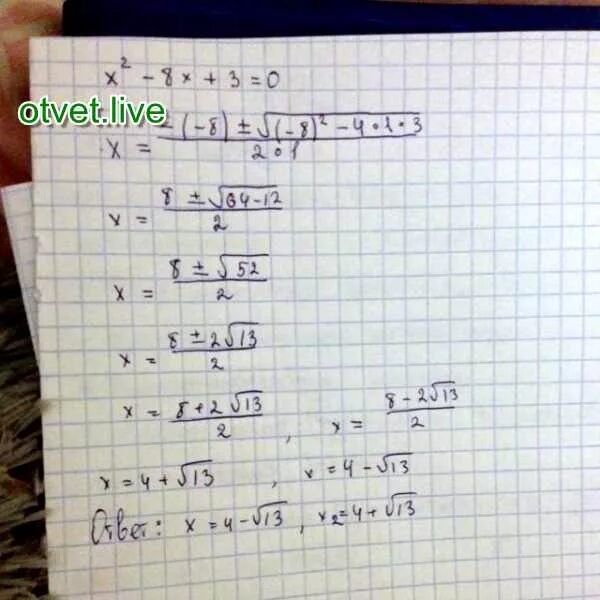 x² - 8x + 3 = 0
otvet.live
x = -(-8) ± √(-8)² - 4·1·3 / 2·1
x = 8 ± √64-12 / 2
x = 8 ± √52 / 2
x = 8 ± 2√13 / 2
x = 8 + 2√13 / 2 , x = 8 - 2√13 / 2
x = 4 + √13 , x = 4 - √13
Ответ: x = 4 - √13 , x₂ = 4 + √13